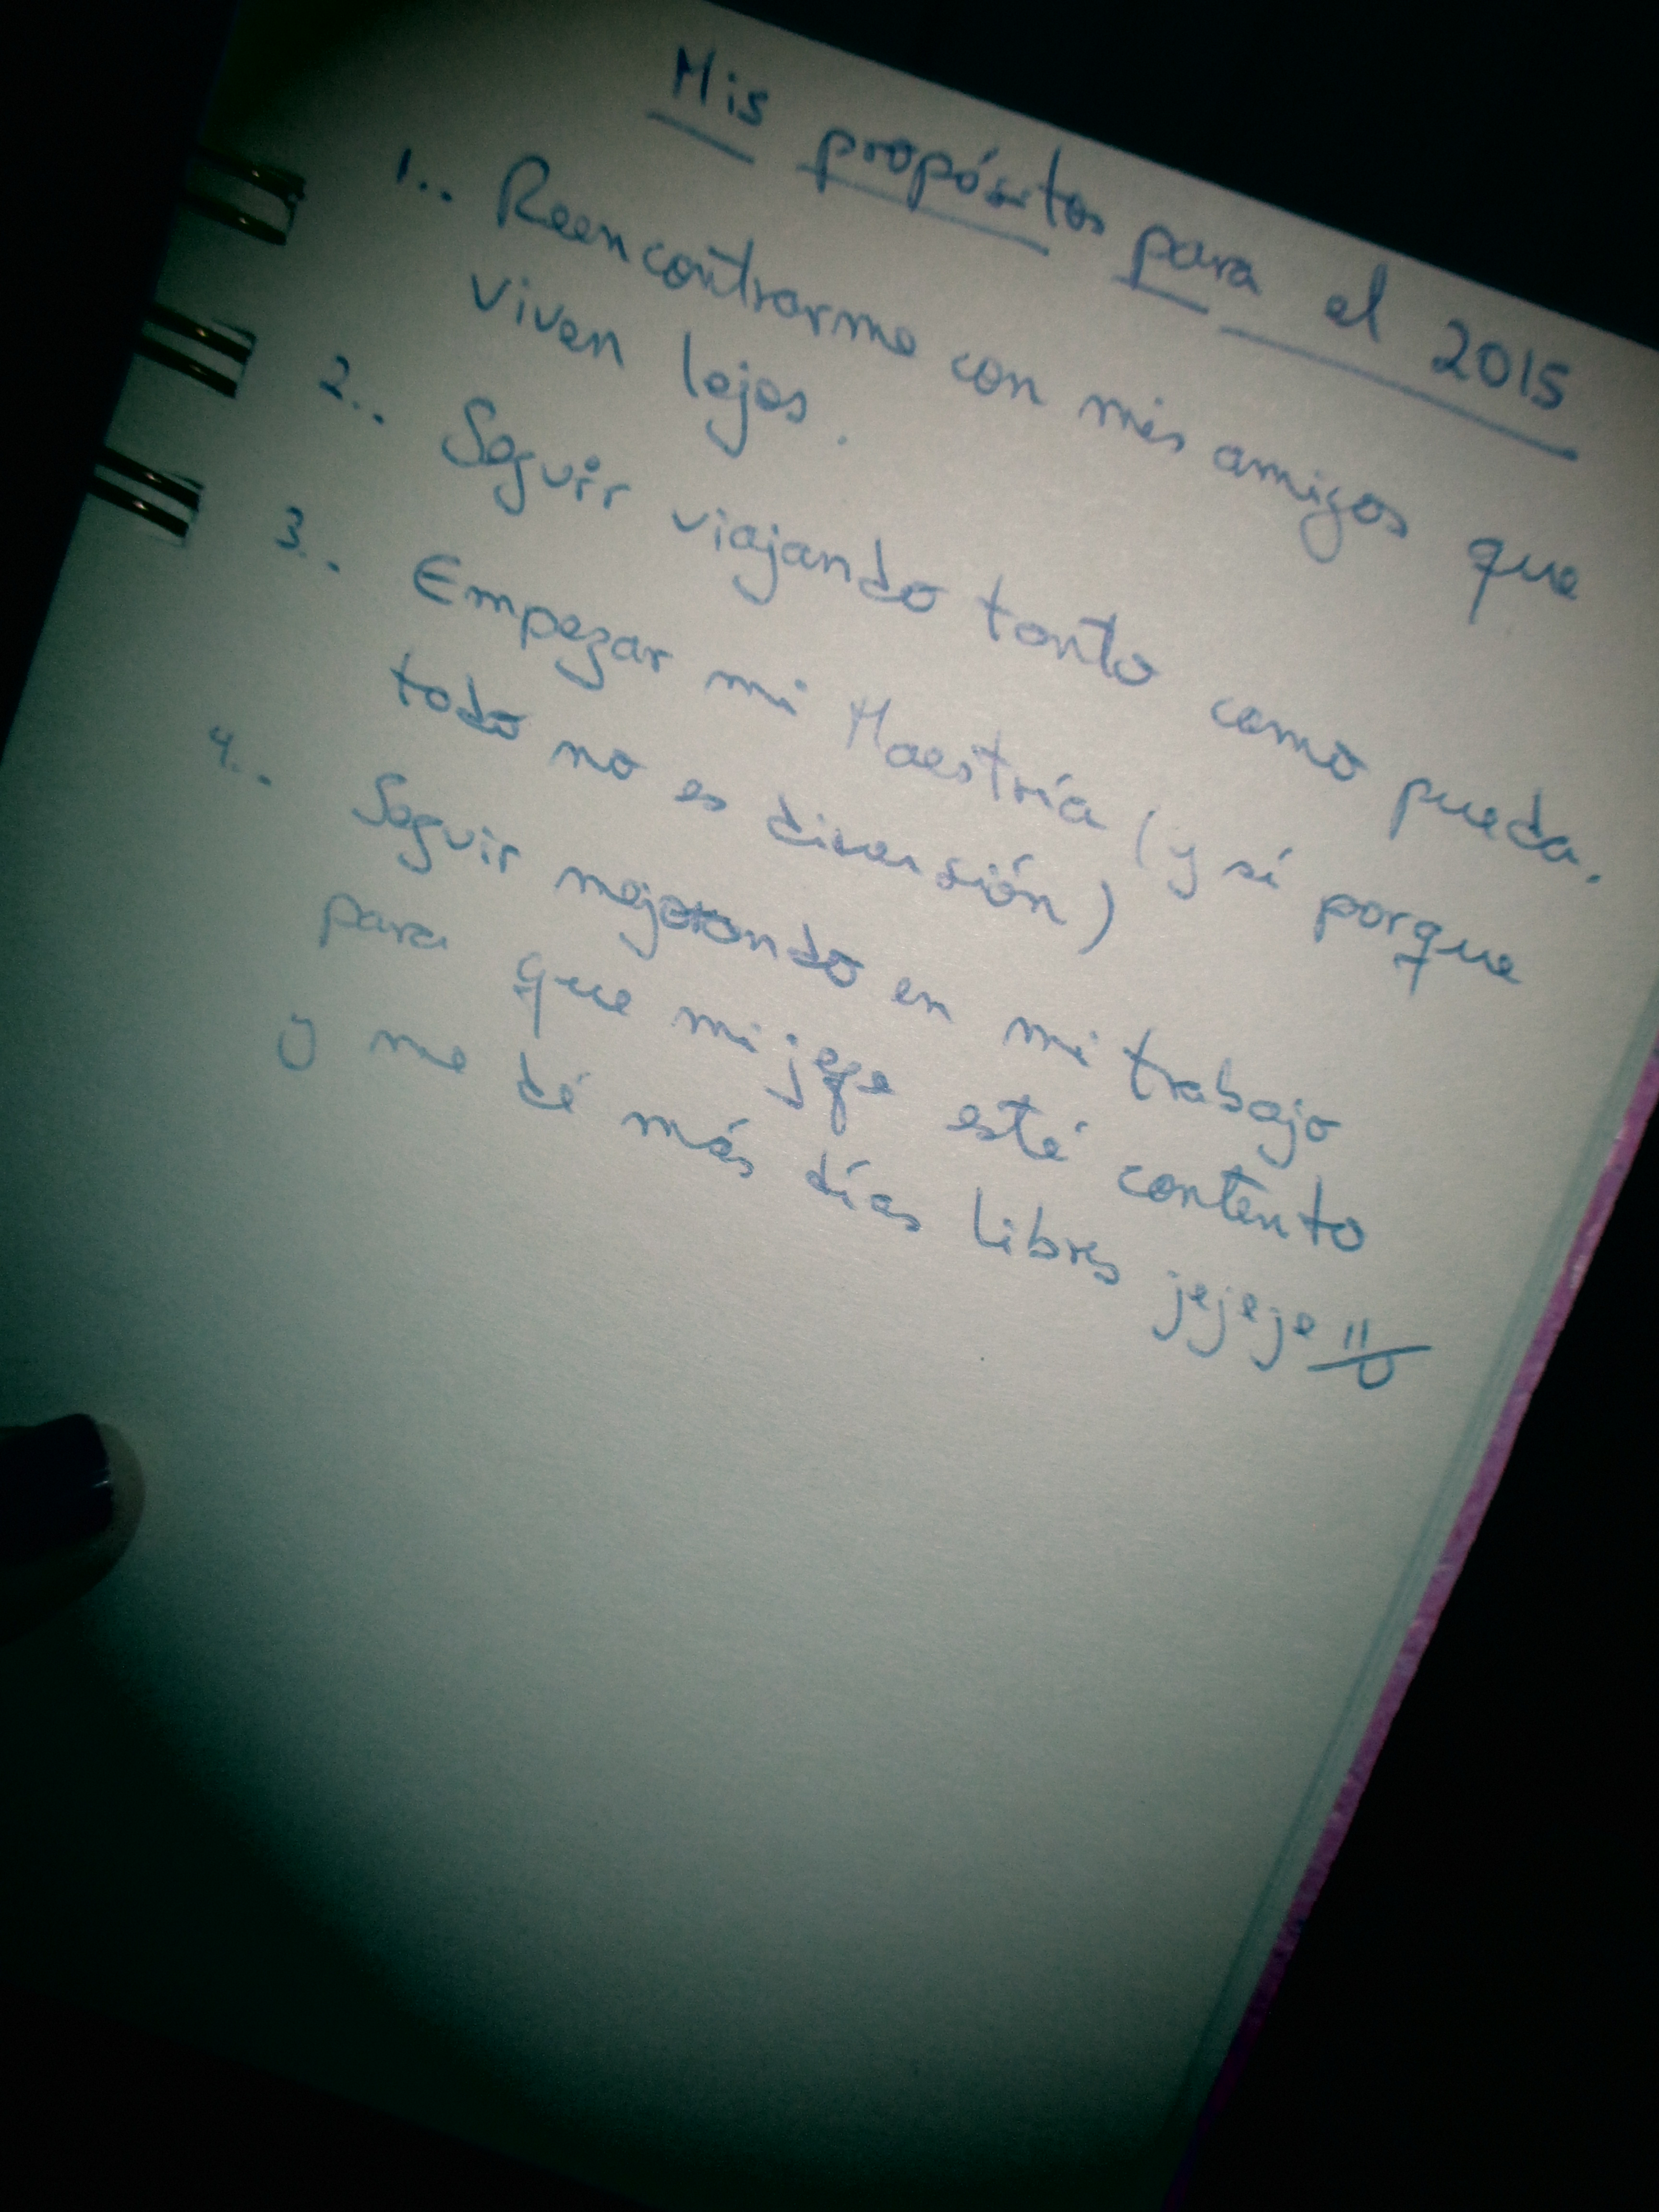 Mis propósitos para el 2015
1.. Reencontrarme con mis amigos que
viven lejos.
2.. Seguir viajando tanto como pueda.
3.. Empezar mi Maestría (y sí porque
todo no es diversión)
4.. Seguir mejorando en mi trabajo
para que mi jefe esté contento
y me dé más días libres jejeje